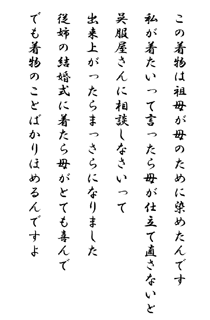 この着物は祖母が母のために染めたんです
私が着たいって言ったら母が仕立て直さないと
呉服屋さんに相談しなさいって
出来上がったらまっさらになりました
従姉の結婚式に着たら母がとても喜んで
でも着物のことばかりほめるんですよ